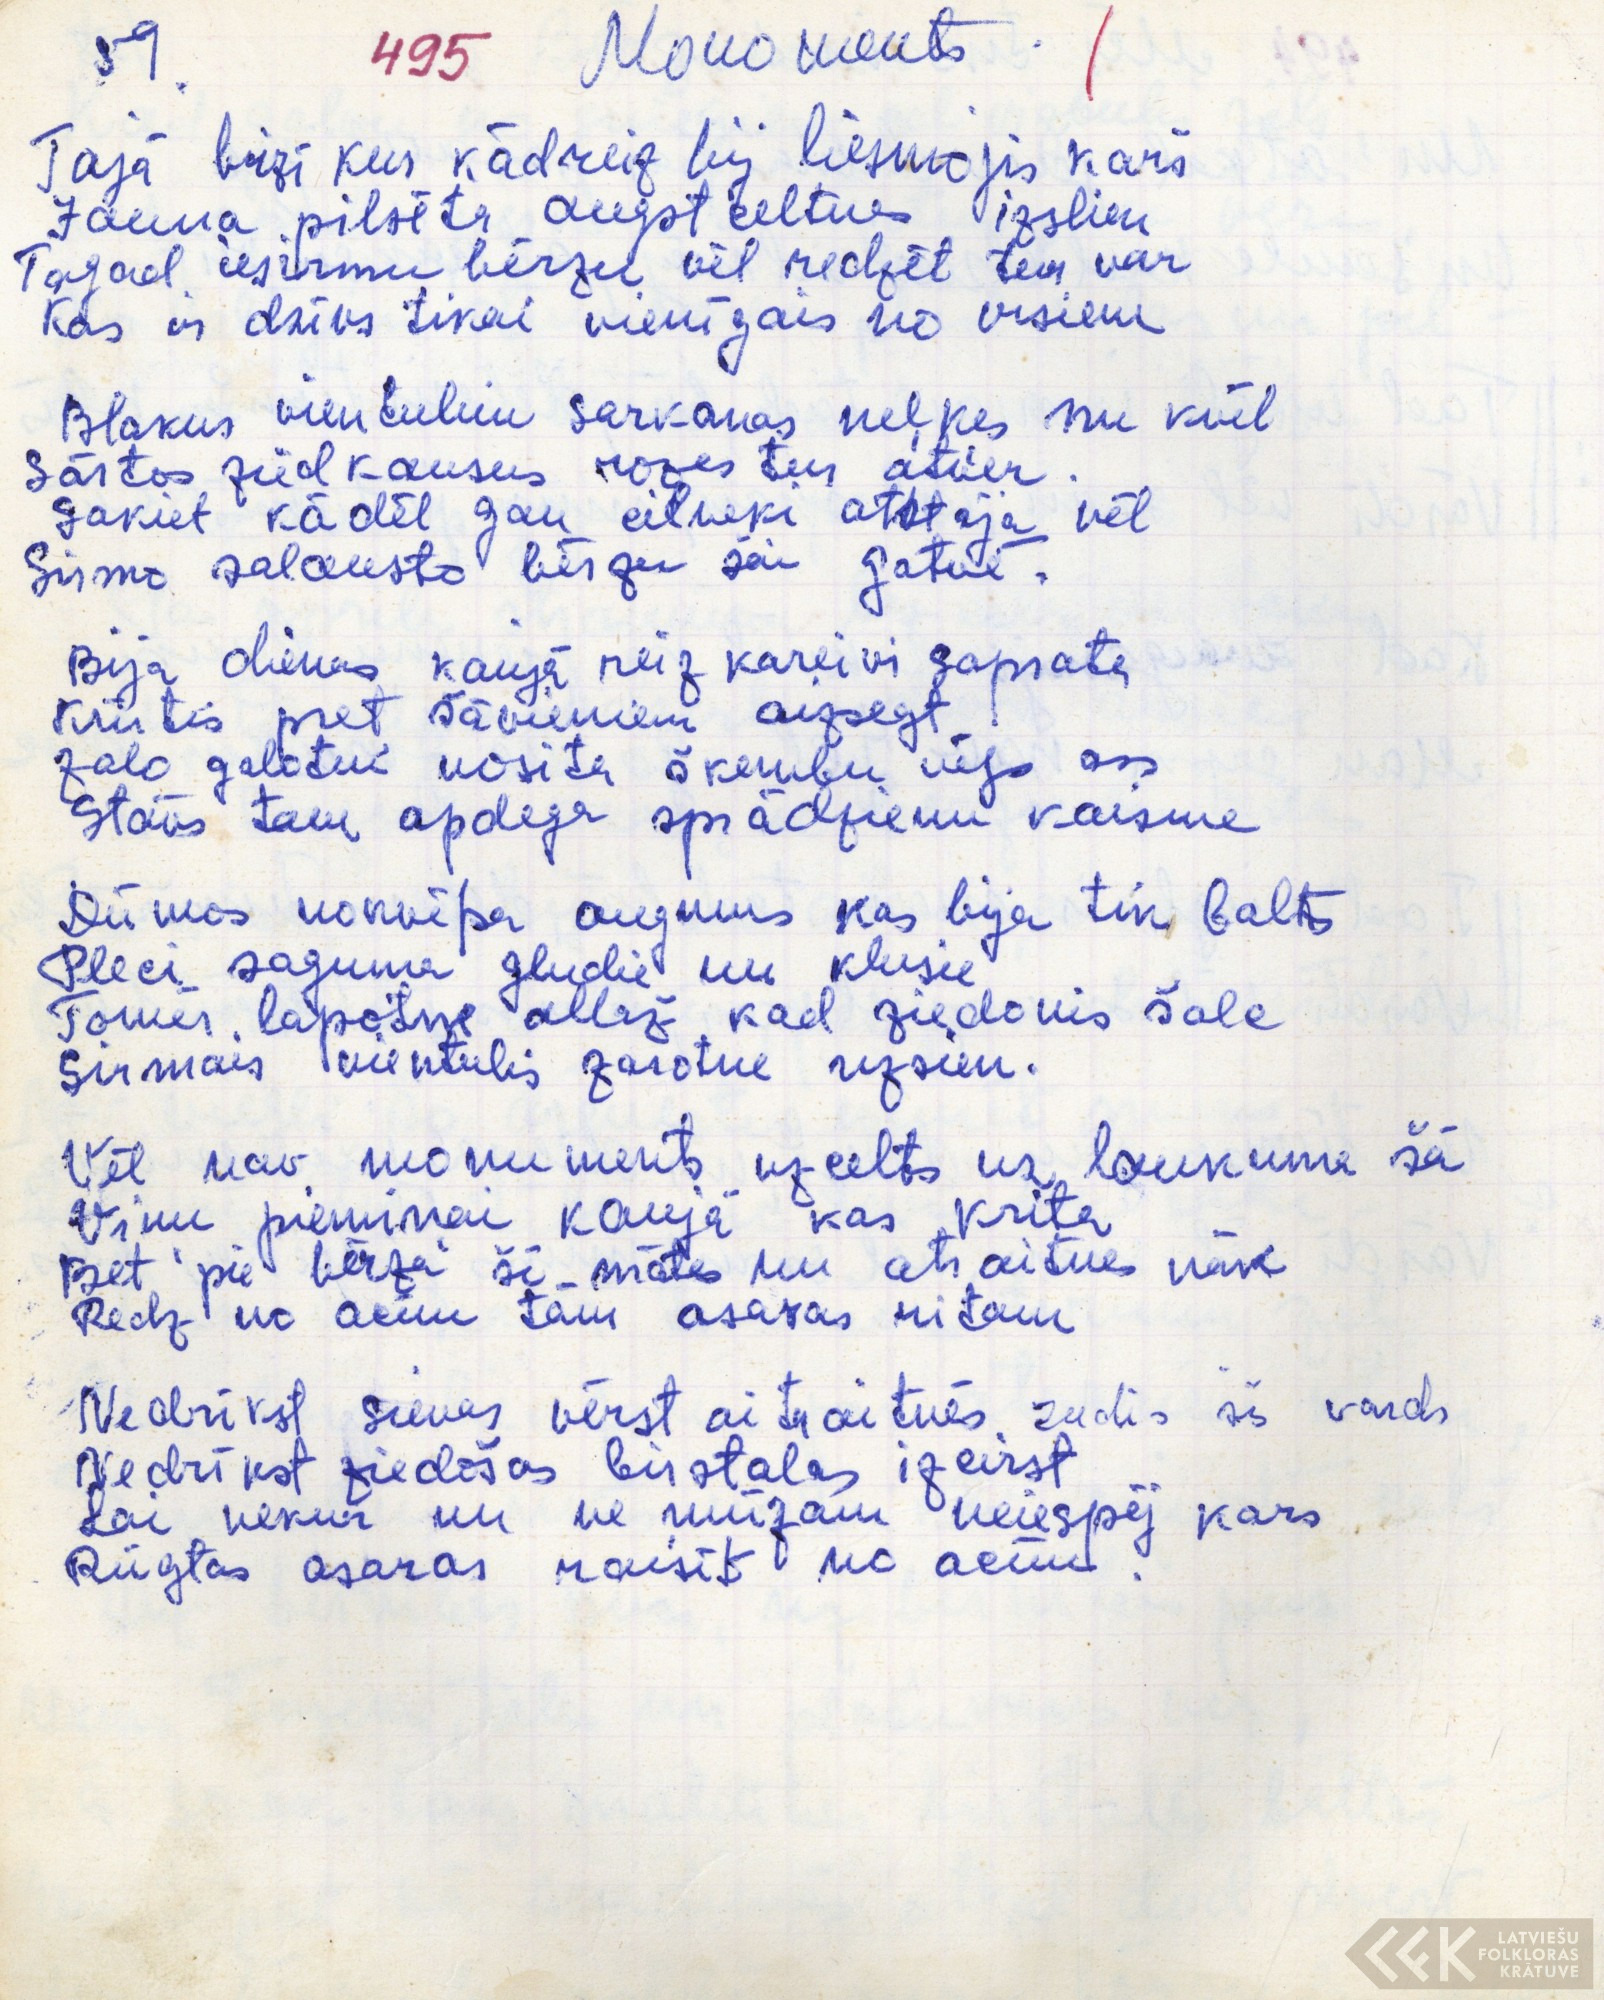 59. 495 Monoments. /
Tajā birzī kur kādreiz bij liesmojis karš
Jauna pilsēta augstceltnes izslien
Tagad iesirmu bērzu vēl redzēt tur var
Kas ir dzīvs tikai vienīgais no visiem
Blakus vientulim sarkanas neļķes nu kvēl
Sārtos ziedkausus rozes tur atver.
Sakiet kādēļ gan cilvēki atstāja vēl
Sirmo salausto bērzu šai gatvē.
Bija dienas kaujā reiz kareivi saprata
Krūtis pret šāvieniem aizsegt
Zaļo galotni nosita šķembu vējs ass
Stāvs tam apdega sprādzienu kaisme
Dūmos nokvēpa augums kas bija tik balts
Pleci saguma gludie nu klusie
Tomēr lapotne allaž kad ziedonis šalc
Sirmais vientulis zarotnē uzsien.
Vēl nav monuments uzcelts uz laukuma šā
Viņu piemiņai kaujā kas krita
Bet pie bērza šī mātes un atraitnes nāk
Redz no acīm tām asaras ritam
Nedrīkst sievas vērst aitraitnēs zudis šis vards
Nedrīkst ziedošas birstalas izcirst
Lai nekur un ne mūžam neiespēj kars
Rūgtas asaras raisīt no acīm.
LATVIEŠU
FOLKLORAS
KRĀTUVE